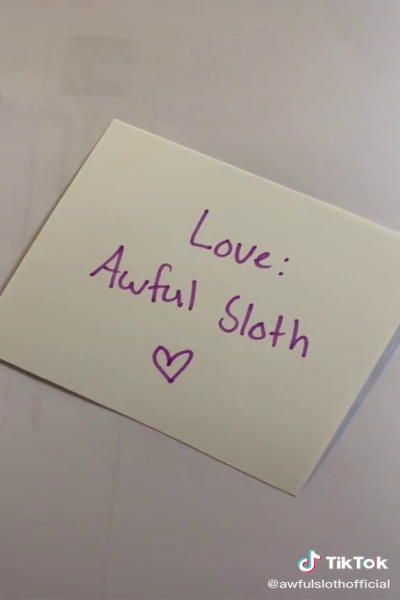 Love:
Awful Sloth
TikTok
@awfulslothofficial